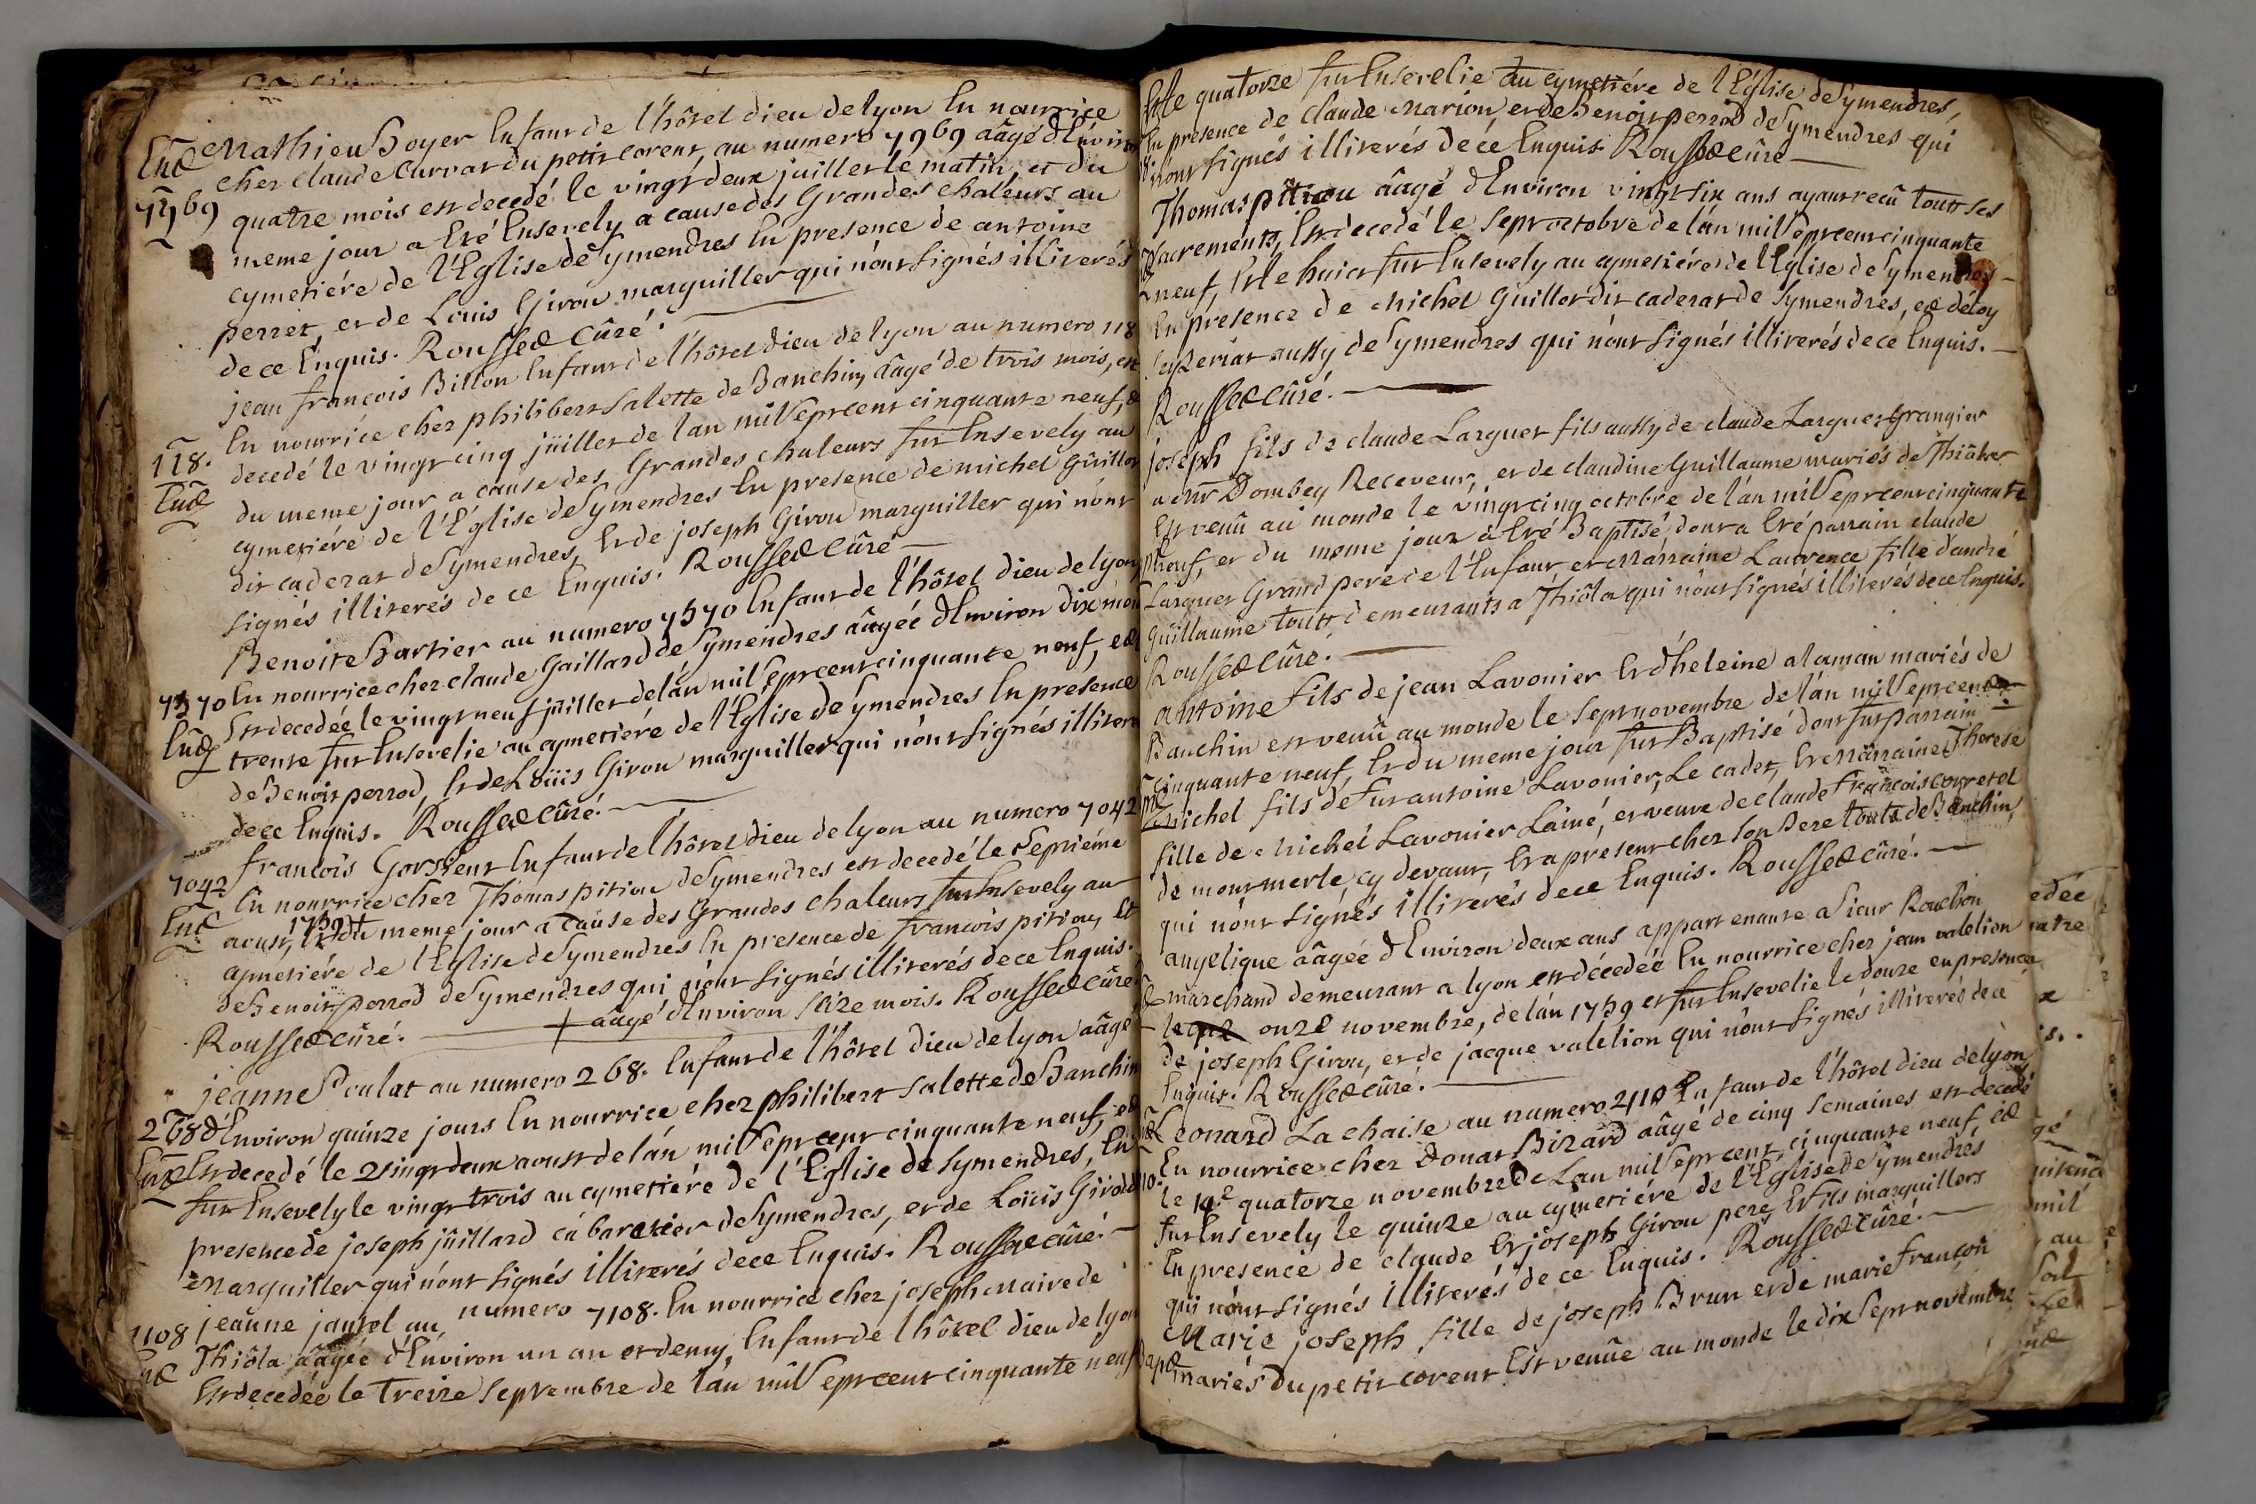 Mathieu Boyer Enfant de l'hôtel dieu de lyon En nourrice
Ene chez claude Curvat du petit corent, au numero 7969 aâgé d'Environ
7969 quatre mois est decedé le vingt deux juillet le matin, et du
meme jour a Eté Ensevely a cause des Grandes chaleurs au
cymetiére de l'Eglise de Symendres En presence de antoine
perret, et de Loüis Girou marguiller qui n'ont signés illiterés
de ce Enquis. Roussed Cûré.
jean francois Billon Enfant de l'hôtel dieu de lyon au numero 118
En nourrice chez philibert Salette de Banchin, aâgé de trois mois, est
118. decedé le vingt cinq jüillet de l'an mil Sept cent cinquante neuf, &
Ene du meme jour a cause des Grandes chaleurs fut Ensevely au
cymetiére de l'Eglise de Symendres En presence de michel Guillot
dit caderat de Symendres, Et de joseph Girou marguiller qui n'ont
signés illiterés de ce Enquis. Roussed Cûré
Benoite Bartier au numero 7570 Enfant de l'hôtel dieu de lyon
7570 En nourrice chez claude Gaillard de Symendres aâgée d'Environ dix mois
Est decedée le vingt neuf jüillet de l'án mil Sept cent cinquante neuf, et le
Ene trente fut Ensevelie au cymetiére de l'Eglise de Symendres En presence
de Benoit perrod, Et de Loüis Girou marguiller qui n'ont signés illiterés
de ce Enquis. Roussed Cûré.
francois Enfant de l'hôtel dieu de lyon au numero 7042
7042 En nourrice chez Thomas pitiou de Symendres est decedé le Septiéme
Ene aoust, 1759 Et du meme jour a cause des Grandes chaleurs fut Ensevely au
cymetiére de l'Eglise de Symendres En presence de francois pitiou, Et
de Benoit perrod de Symendres qui n'ont signés illiterés de ce Enquis.
Roussed cûré. + aâgé d'Environ Seize mois. Roussed Cûré
jeanne Poulat au numero 268. Enfant de l'hôtel dieu de lyon aâgé
268 d'Environ quinze jours En nourrice chez philibert Salette de Banchin
Ene Est decedé le vingt deux aoust de l'án mil Sept cent cinquante neuf, et
fut Ensevely le vingt trois au cymetiére de l'Eglise de Symendres, En
presence de joseph jüillard câbaretier de Symendres, et de Loüis Girou
marguiller qui n'ont signés illiterés de ce Enquis. Roussed cûré.
7108 jeanne jantet au numero 7108. En nourrice chez joseph naire de
Ene Thiôla aâgée d'Environ un an et demy, Enfant de l'hôtel dieu de lyon
Est decedée le treize Septembre de l'an mil Sept cent cinquante neuf
Et le quatorze fut Ensevelie au cymetiére de l'Eglise de Symendres,
En presence de claude Marion, et de Benoit perrod de Symendres qui
n'ont signés illiterés de ce Enquis Roussed cûré
Thomas pitiou aâgé d'Environ vingt six ans ayant reçû touts ses
Sacrements, Est decedé le Sept octobre de l'án mil Sept cent cinquante
neuf, Et le huict fut Ensevely au cymetiére de l'Eglise de Symendres
En presence de Michel Guillot dit caderat de Symendres, et
aussy de Symendres qui n'ont signés illiterés de ce Enquis.
Roussed Cûré.
joseph fils de claude Larguet fils aussy de claude Larguet Grangier
a mr Dombey Receveur, et de claudine Guillaume mariés de Thiôla
Est venû au monde le vingt cinq octobre de l'án mil Sept cent cinquante
neuf, et du meme jour à Eté Baptisé, dont a Eté parrain claude
Larguet Grand pere de l'Enfant et Marraine Laurence fille d'andré
Guillaume touts demeurants a Thiôla qui n'ont signés illiterés de ce Enquis.
Roussed Cûré.
antoine fils de jean Lavonier Et d'heleine alaman mariés de
Banchin est venû au monde le Sept novembre de l'án mil Sept cent
cinquante neuf, Et du meme jour fut Baptisé dont fut parrain
Michel fils de fut antoine Lavonier, Le cadet, Et Marraine Therese
fille de Michel Lavonier Lainé, et veuve de claude francois couvetel
de montmerle, cy devant, Et a present chez son Pere touts de Banchin,
qui n'ont signés illiterés de ce Enquis. Roussed cûré.
angelique aâgée d'Environ deux ans appartenante a Sieur Rouchon
marchand demeurant a lyon est décedée En nourrice chez jean valelion
le onze novembre, de l'án 1759 et fut Ensevelie le douze en presence
de joseph Girou, et de jacque valelion qui n'ont signés illiterés de ce
Enquis. Roussed cûré.
Léonard La chaise au numero 2110 Enfant de l'hôtel dieu de lyon
En nourrice chez Donat Bizard aâgé de cinq Semaines est decedé
le quatorze novembre de Lan mil Sept cent cinquante neuf, et
fut Ensevely le quinze au cymetiére de l'Eglise de Symendres
En presence de claude Et joseph Girou pere, Et fils marguillers
qui n'ont signés illiterés de ce Enquis. Roussed cûré.
Marie joseph fille de joseph Brun et de marie francon
mariés du petit corent Est venûe au monde le dix Sept novembre